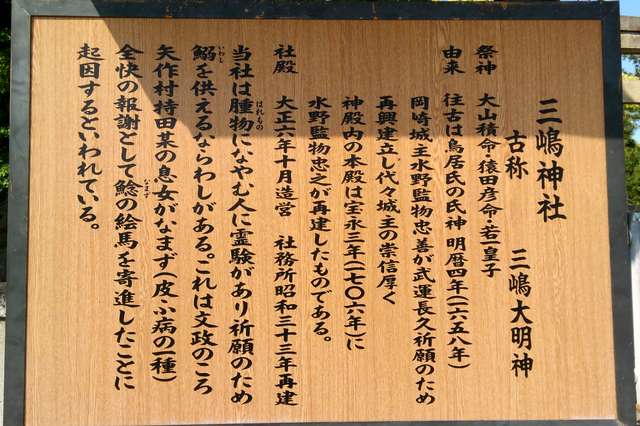 三嶋神社
古称　三嶋大明神
祭神　大山積命・猿田彦命・若一皇子
由来　往古は鳥居氏の氏神 明暦四年(一六五八年)
岡崎城主水野監物忠善が武運長久祈願のため
再興建立し代々城主の崇信厚く
神殿内の本殿は宝永三年(一七〇六年)に
水野監物忠之が再建したものである。
社殿　大正六年十月造営　社務所昭和三十三年再建
当社は腫物になやむ人に霊験があり祈願のため
はれもの
鰯を供えるならわしがある。これは文政のころ
いわし
矢作村持田某の息女がなまず(皮ふ病の一種)
全快の報謝として鯰の絵馬を寄進したことに
なまず
起因するといわれている。